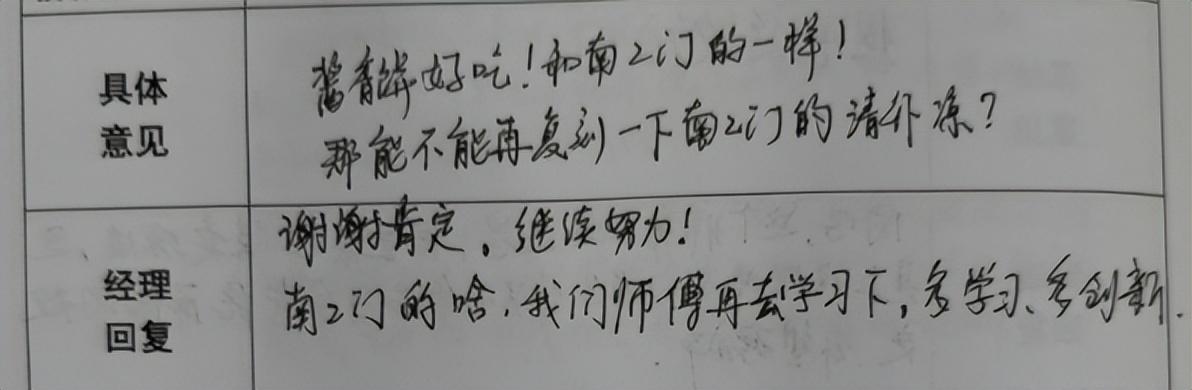 具体
意见
酱香饼好吃！和南2门的一样！
那能不能再复刻一下南2门的请补凉？
经理
回复
谢谢肯定。继续努力！
南2门的啥，我们师傅再去学习下，多学习、多创新.